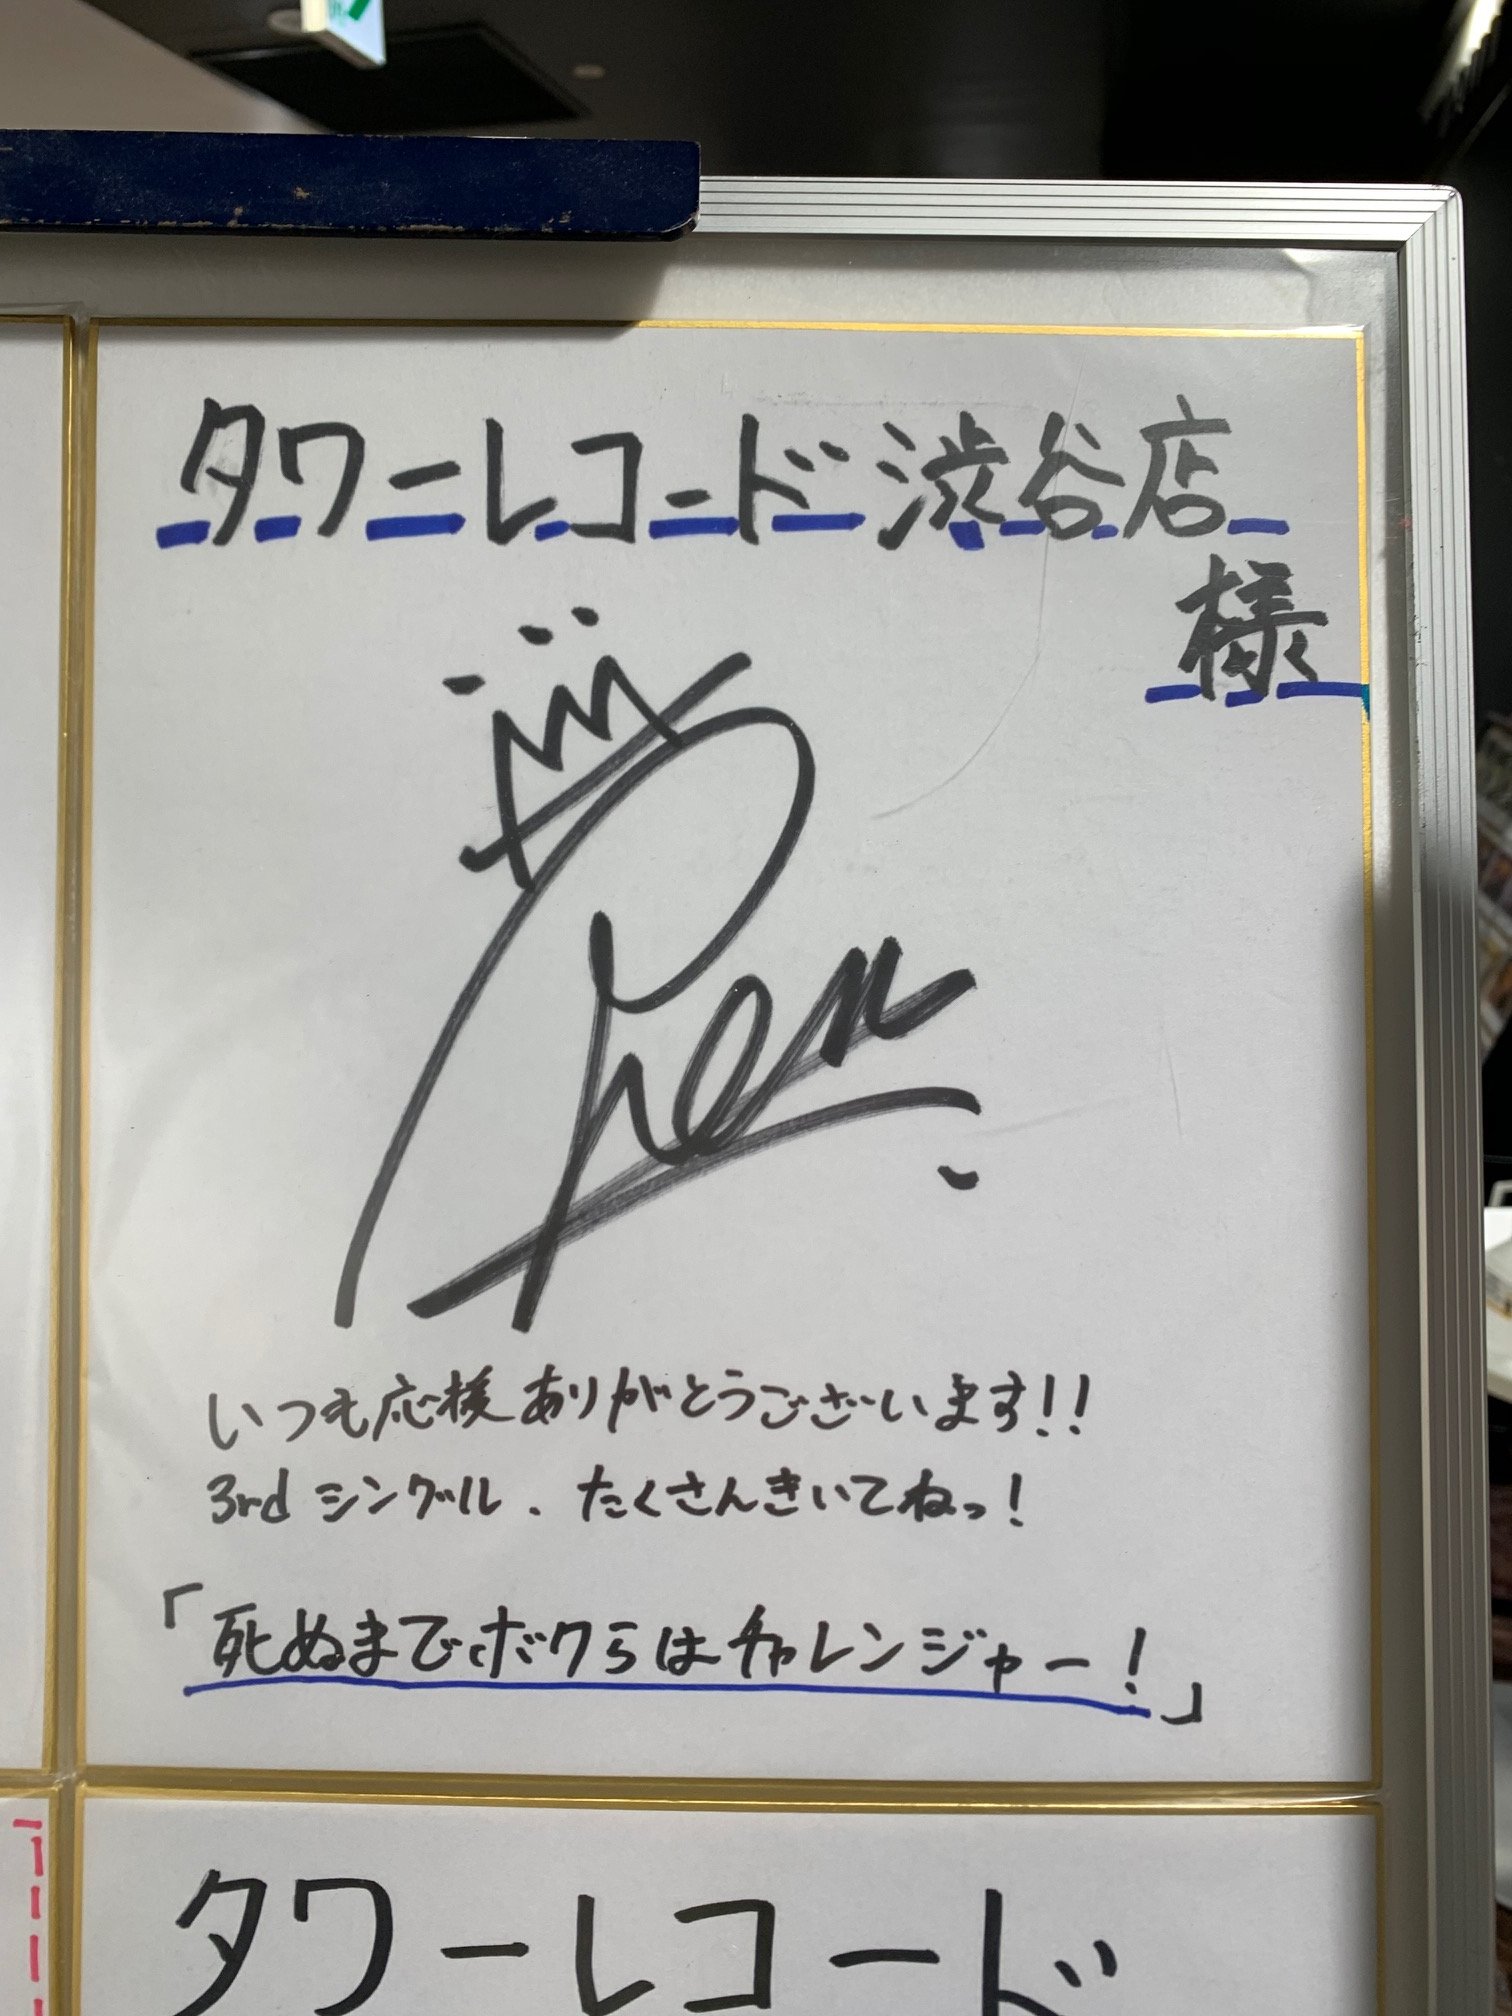 タワーレコード渋谷店
様
Ren
いつも応援ありがとうございます!!
3rdシングル、たくさんきいてねっ!
「死ぬまでボクらはチャレンジャー!」
タワーレコード